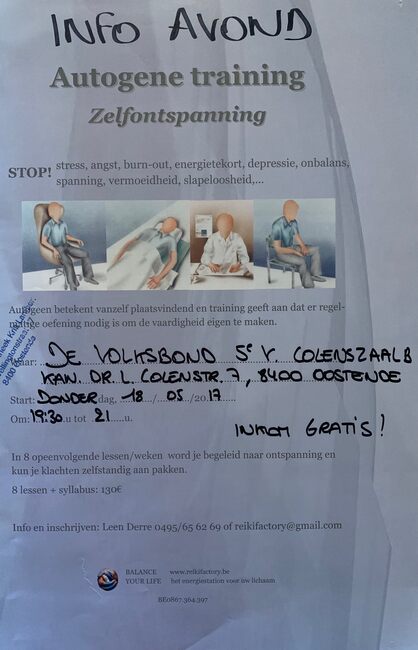 INFO AVOND
Autogene training
Zelfontspanning
STOP! stress, angst, burn-out, energietekort, depressie, onbalans,
spanning, vermoeidheid, slapeloosheid,...
Autogeen betekent vanzelf plaatsvindend en training geeft aan dat er regel-
matige oefening nodig is om de vaardigheid eigen te maken.
Waar: DE VOLKSBOND 5e V. COLENSZAAL B
KAN. DR. L. COLENSTR. 7, 8400 OOSTENDE
Start: DONDERdag, 18/05/2017
Om: 19:30 u tot 21 u.
INKOM GRATIS!
In 8 opeenvolgende lessen/weken word je begeleid naar ontspanning en
kun je klachten zelfstandig aan pakken.
8 lessen + syllabus: 130€
Info en inschrijven: Leen Derre 0495/65 62 69 of reikifactory@gmail.com
BALANCE www.reikifactory.be
YOUR LIFE het energiestation voor uw lichaam
BE0867.364.397
8400 Oostende